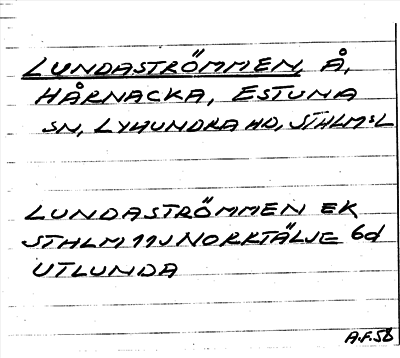 LUNDASTRÖMMEN, Å,
HÅRNACKA, ESTUNA
SN, LYHUNDRA HD, STHLM:S L
LUNDASTRÖMMEN EK
STHLM 11J NORRTÄLJE 6d
UTLUNDA
A.F. 58